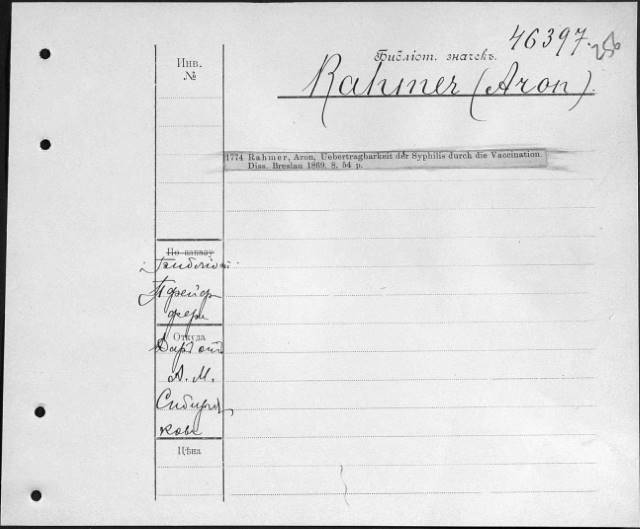 46397.
Инв.
№
Библіот. значекъ.
Rahmer (Aron).
1774 Rahmer, Aron, Uebertragbarkeit der Syphilis durch die Vaccination.
Diss. Breslau 1869. 8. 54 p.
По заказу
Пфейф
фера
Откуда
Даръ отъ
А. М.
Сибиря
кова
Цѣна